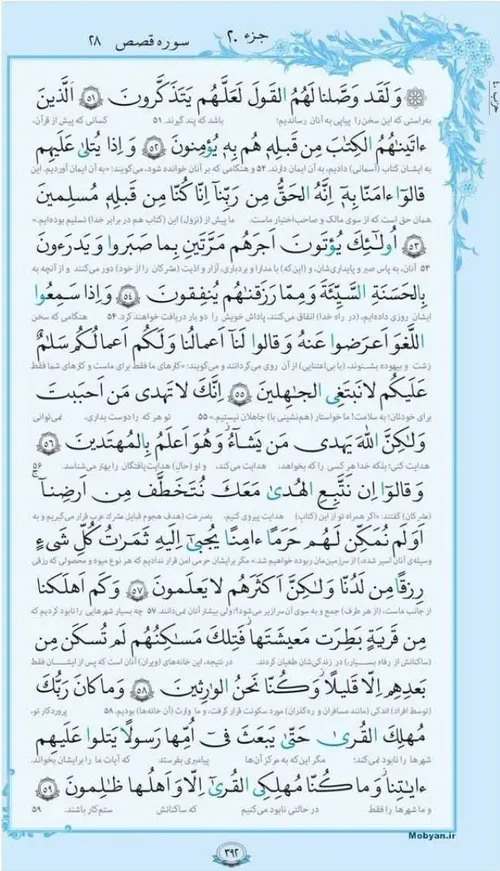 جزء ۲۰
سوره قصص ۲۸
وَلَقَد وَصَّلنا لَهُمُ القَولَ لَعَلَّهُم يَتَذَكَّرونَ ۵۱ اَلَّذينَ
به‌راستی که این سخن را پیاپی به آنان رساندیم؛ باشد که پند گیرند. ۵۱ کسانی که پیش از قرآن،
ءاتَينٰهُمُ الكِتٰبَ مِن قَبلِهٖ هُم بِهٖ يُؤمِنونَ ۵۲ وَ اِذا يُتلىٰ عَلَيهِم
به ایشان کتاب (آسمانی) دادیم، به آن ایمان دارند. ۵۲ و هنگامی که بر آنان خوانده شود، می‌گویند: «به آن ایمان آوردیم. این
قالوٓا ءامَنّا بِهٖٓ اِنَّهُ الحَقُّ مِن رَبِّنآ اِنّا كُنّا مِن قَبلِهٖ مُسلِمينَ
همان حق است که از سوی مالک و صاحب‌اختیار ماست. ما پیش از (نزول) این (کتاب هم در برابر خدا) تسلیم بوده‌ایم.»
۵۳ اُولٰٓئِكَ يُؤتَونَ اَجرَهُم مَرَّتَينِ بِما صَبَروا وَ يَدرَءونَ
۵۳ آنان، به پاس صبر و پایداری‌شان، و (این‌که) با مدارا و بردباری، آزار و اذیت (مشرکان را از خود) دور می‌کنند و از آنچه به
بِالحَسَنَةِ السَّيِّئَةَ وَ مِمّا رَزَقنٰهُم يُنفِقونَ ۵۴ وَ اِذا سَمِعُوا
ایشان روزی داده‌ایم، (در راه خدا) انفاق می‌کنند، پاداش خویش را دو بار دریافت خواهند کرد. ۵۴ هنگامی که سخن
اللَّغوَ اَعرَضوا عَنهُ وَ قالوا لَنآ اَعمالُنا وَ لَكُم اَعمالُكُم سَلٰمٌ
زشت و بیهوده بشنوند، (با بی‌اعتنایی) از آن روی می‌گردانند و می‌گویند: «کارهای ما فقط برای ماست و کارهای شما فقط
عَلَيكُم لا نَبتَغِي الجٰهِلينَ ۵۵ اِنَّكَ لا تَهدي مَن اَحبَبتَ
برای خودتان؛ به سلامت! ما خواستار (هم‌نشینی با) جاهلان نیستیم.» ۵۵ تو هر که را دوست بداری، نمی‌توانی
وَلٰكِنَّ اللّٰهَ يَهدي مَن يَشآءُ وَ هُوَ اَعلَمُ بِالمُهتَدينَ ۵۶
هدایت کنی؛ بلکه خدا هر کسی را که بخواهد، هدایت می‌کند، و او (حال) هدایت‌یافتگان را بهتر می‌شناسد. ۵۶
وَ قالوٓا اِن نَتَّبِعِ الهُدىٰ مَعَكَ نُتَخَطَّف مِن اَرضِنآ
(مشرکان) گفتند: «اگر همراه تو از این (کتاب) هدایت پیروی کنیم، به‌سرعت (هدف هجوم قبایل مشرک عرب قرار می‌گیریم و به
اَوَلَم نُمَكِّن لَهُم حَرَمًا ءامِنًا يُجبىٰٓ اِلَيهِ ثَمَرٰتُ كُلِّ شَيءٍ
وسیله‌ی آنان اسیر شده،) از سرزمین‌مان ربوده خواهیم شد.» مگر برایشان حرمی امن قرار ندادیم که هر نوع میوه و محصولی که رزقی
رِزقًا مِن لَدُنّا وَلٰكِنَّ اَكثَرَهُم لا يَعلَمونَ ۵۷ وَ كَم اَهلَكنا
از جانب ماست، (از هر طرف) جمع و به سوی آن سرازیر می‌شود؟! ولی بیشتر آنان نمی‌دانند. ۵۷ چه بسیار شهرهایی را نابود کردیم که
مِن قَريَةٍ بَطِرَت مَعيشَتَها فَتِلكَ مَسٰكِنُهُم لَم تُسكَن مِن
(ساکنانش از رفاه بسیار،) در زندگی‌شان طغیان کردند. در نتیجه، این خانه‌های (ویران) آنان است که پس از ایشان فقط
بَعدِهِم اِلّا قَليلًا وَ كُنّا نَحنُ الوارِثينَ ۵۸ وَ ما كانَ رَبُّكَ
(توسط افراد) اندکی (مانند مسافران و رهگذران) مورد سکونت قرار گرفت، و ما وارث (آن خانه‌ها) بودیم. ۵۸ پروردگار تو،
مُهلِكَ القُرىٰ حَتّىٰ يَبعَثَ فيٓ اُمِّها رَسولًا يَتلوا عَلَيهِم
شهرها را نابود نمی‌کند؛ مگر این‌که به مرکز آن‌ها پیامبری بفرستد که آیات ما را برایشان بخواند.
ءايٰتِنا وَ ما كُنّا مُهلِكِي القُرىٰٓ اِلّا وَ اَهلُها ظٰلِمونَ ۵۹
و ما شهرها را فقط در حالتی نابود می‌کنیم که ساکنانش ستم‌کار باشند. ۵۹
Mobyan.ir
۳۹۲